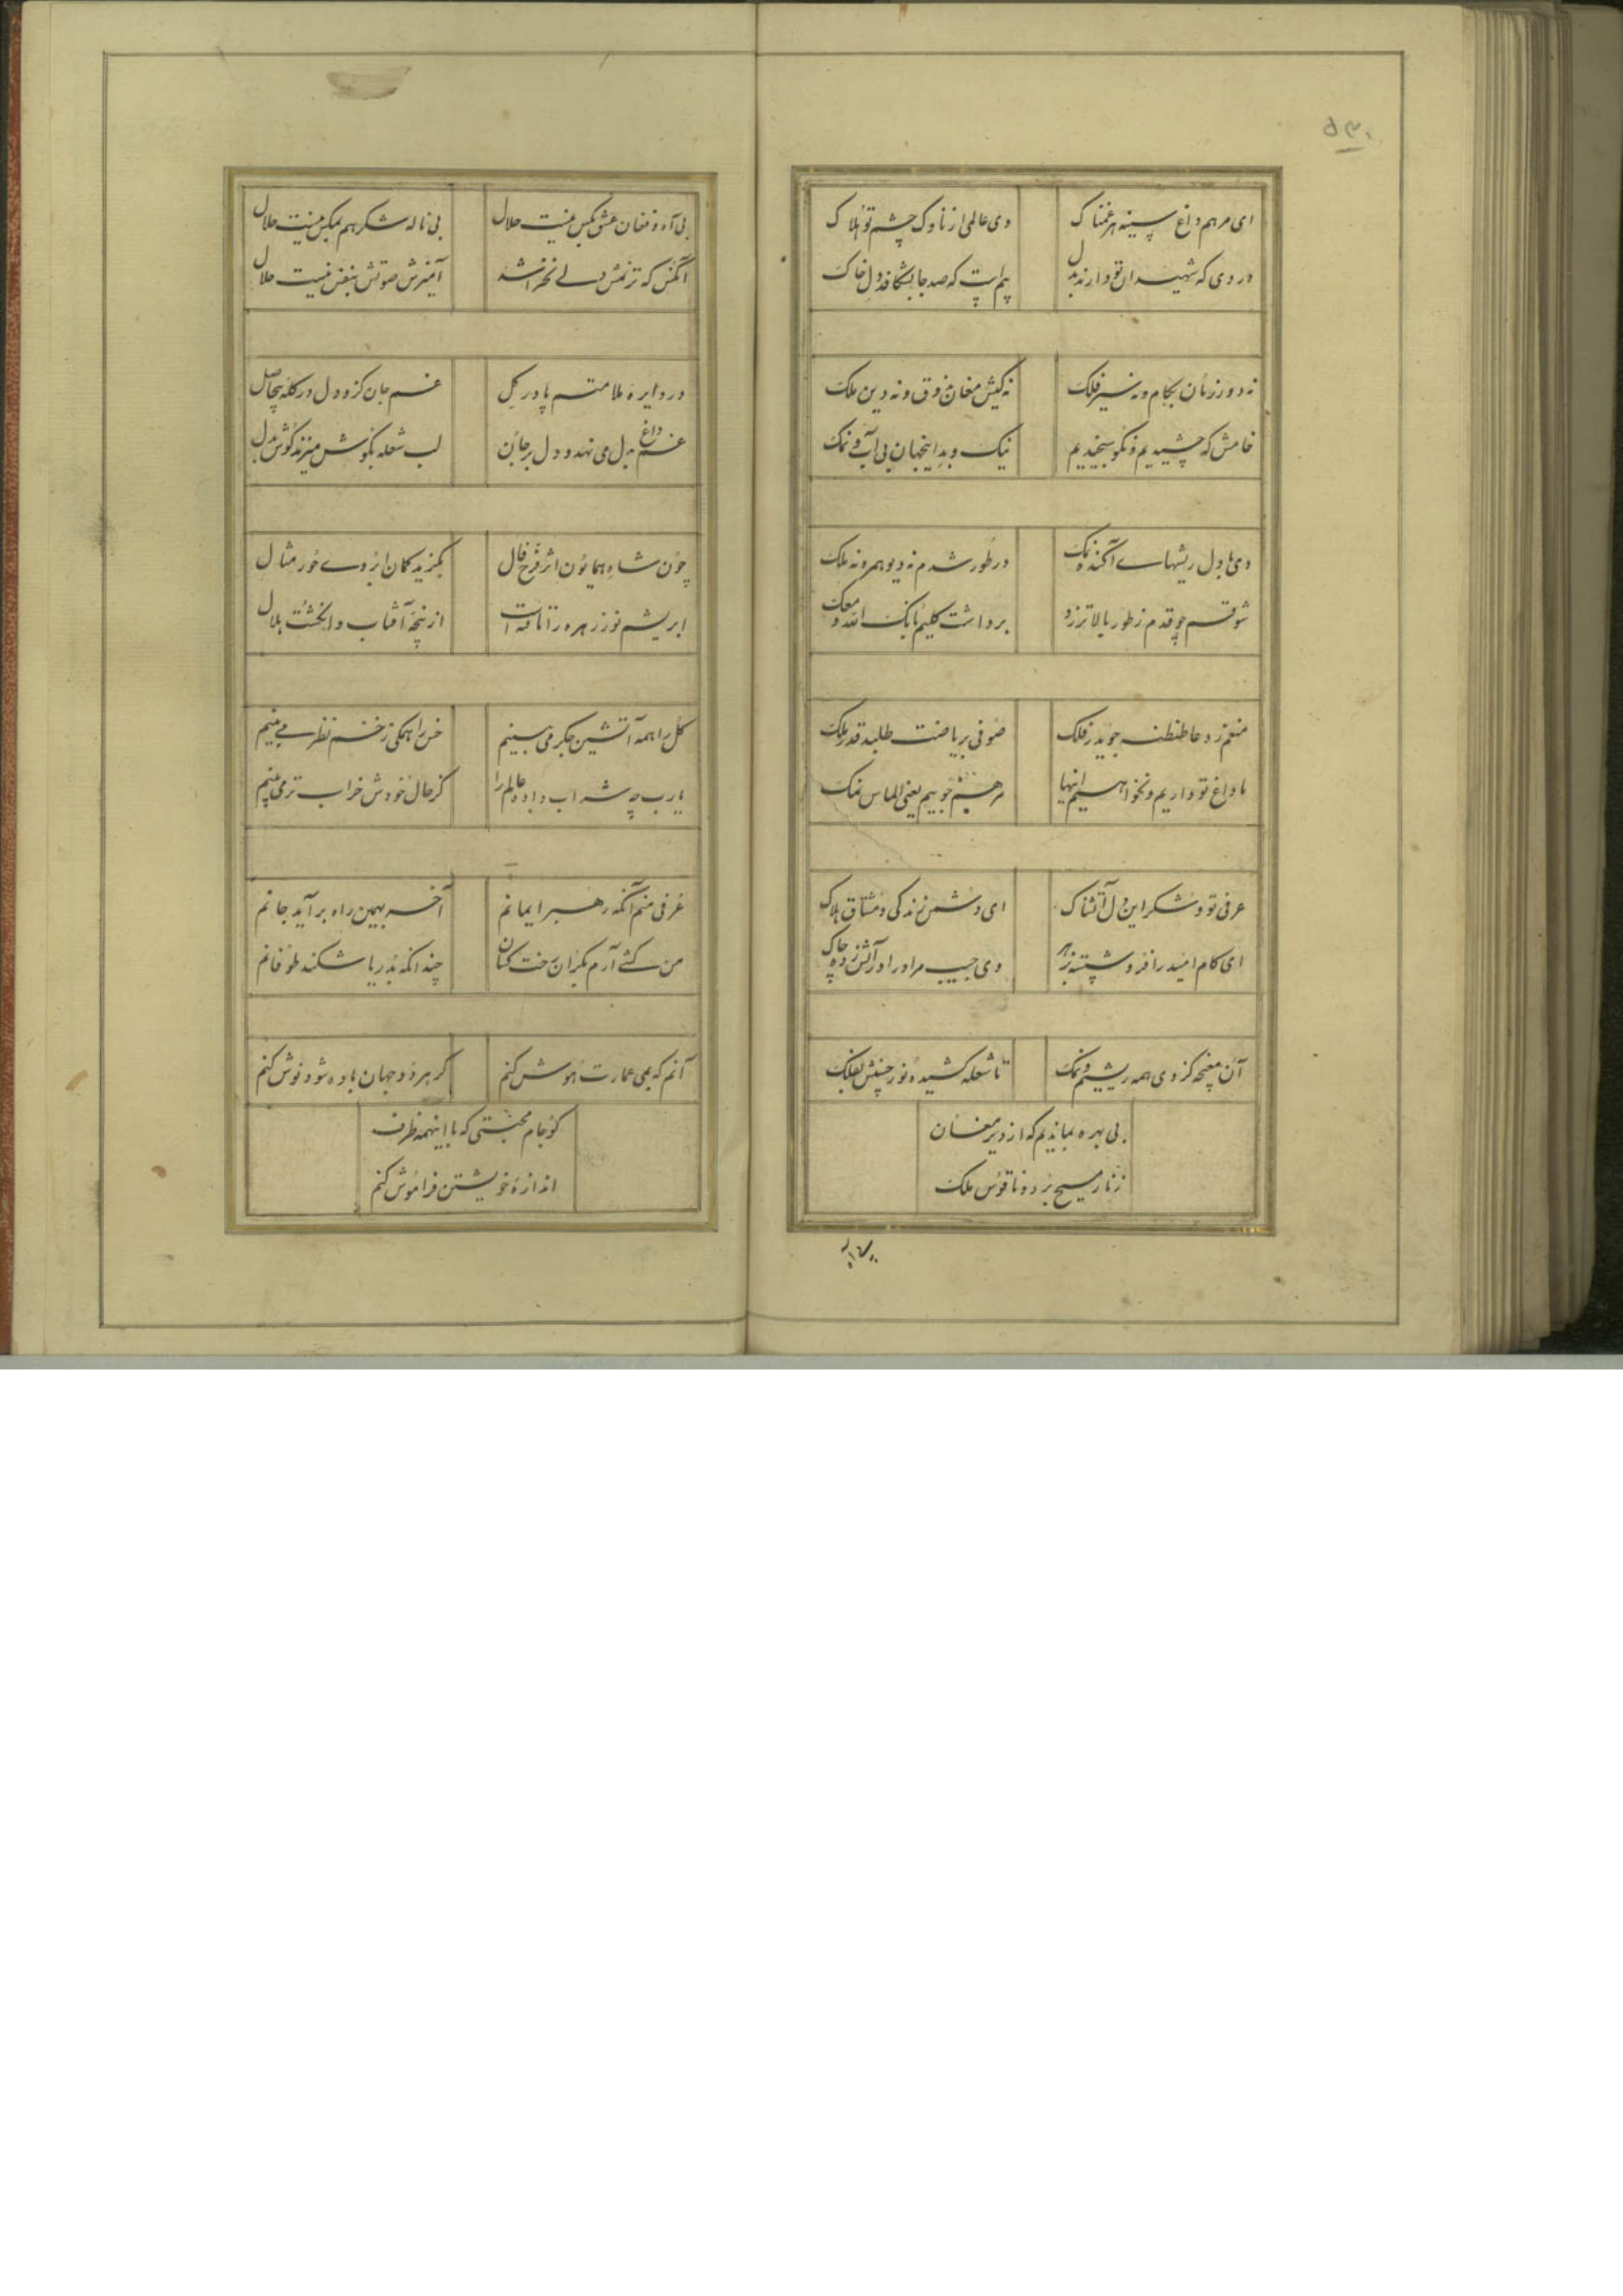 ۵۳۰
ای مرهم داغ سینه هر غمناک وی عالمی از ناوک چشم تو هلاک
دردی که شهیدان تو دارند بدل پیداست که صد جا بشکافد دل خاک
نه دور زمان بکام و نه سیر فلک نه کیش مغان بذوق و نه دین ملک
خامش که چشیدیم و نکو سنجیدیم نیک و بد اینجهان بی آب و نمک
دی با دل ریشهای آکنده نمک در طور شدم نه دیو همره نه ملک
شوقم چو قدم ز طور بالاتر زد برداشت کلیم بانک الله معک
منعم ز دعا طنطنه جوید ز فلک صوفی بریاضت طلبد قدر ملک
ما داغ تو داریم و نخواهیم اینها مرهم جوییم یعنی الماس نمک
عرفی تو و شکر این دل آتشناک ای دشمن زندگی و مشتاق هلاک
ای کام امید را فرو شسته بزهر وی جیب مراد را در آتش زده چاک
آن مغبچه کز وی همه ریشیم و نمک تا شعله کشیده نور حسنش بفلک
بی بهره بماندیم که از دیر مغان
زنار مسیح برد و ناقوس ملک
بی آه و فغان عشق بکس نیست حلال بی ناله شکر هم بمکس نیست حلال
آنکس که ترنمش دلی نخراشد آمیزش صوتش بنفس نیست حلال
در دایره ملامتم پا در گل غم جان گزد و دل در گله بیحاصل
غم داغ بدل می نهد و دل بر جان لب شعله بگوش میزند گوش بدل
چون شاه همایون اثر فرخ فال بگزید کمان ابروی حور مثال
ابریشم نور زهره را تافته است از پنجه آفتاب و انگشت هلال
گل را همه آتشین جگر می بینم خس را همگی زخم نظر می بینم
یارب چه شراب داده عالم را کز حال خودش خراب تر می بینم
عرفی منم آنکه رهبر ایمانم آخر بهمین راه برآید جانم
من کشی آرم بکران رخت کسان چندانکه بدریا شکند طوفانم
آنم که بمی عمارت هوش کنم گر هر دو جهان باده شود نوش کنم
کو جام محبتی که با اینهمه ظرف
اندازه خویشتن فراموش کنم